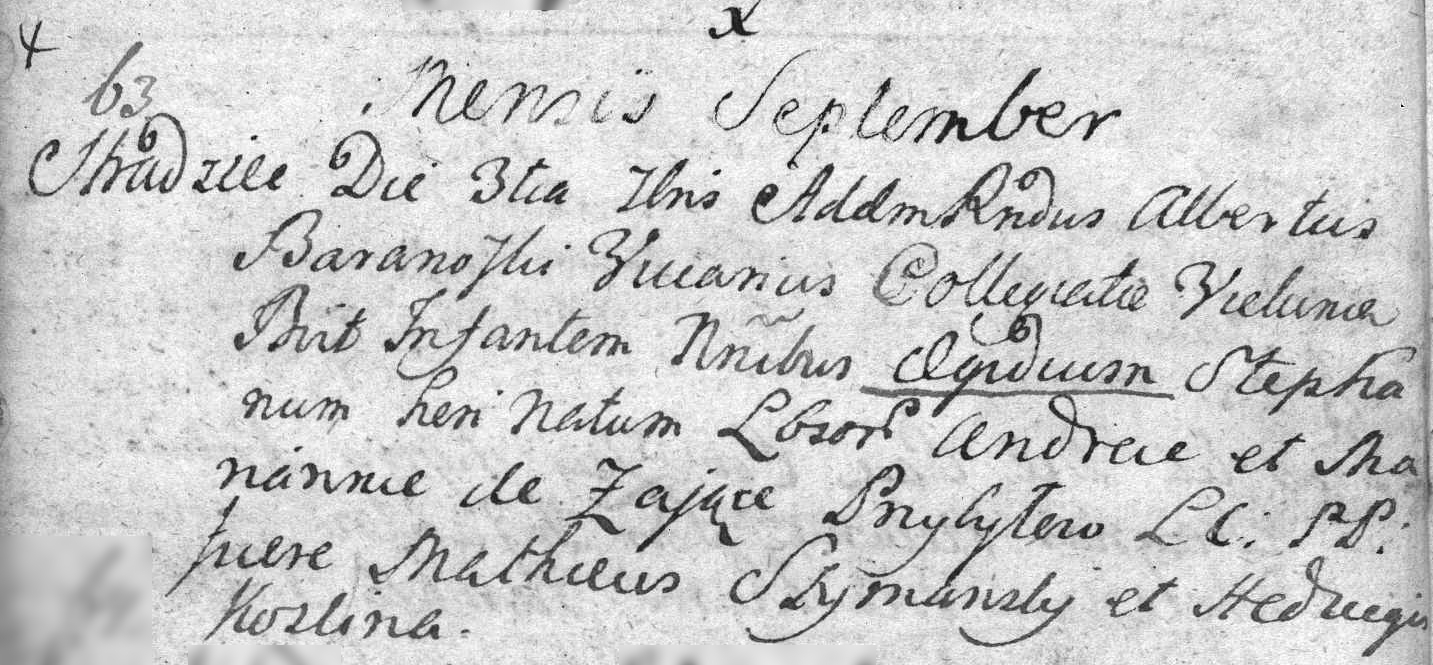 X
4
63 Mensis September
Stradziec Die 3tia 7bris Addm Rndus Albertus
Baranoski Vicarius Collegiatæ Vielunen
Bvit Infantem Nnibus Ægidium Stepha
num heri natum Lbsor Andreæ et Ma
riannæ de Zające Przybyłow LC: PP:
fuere Mathæus Szymansky et Hedvigis
Koslina.